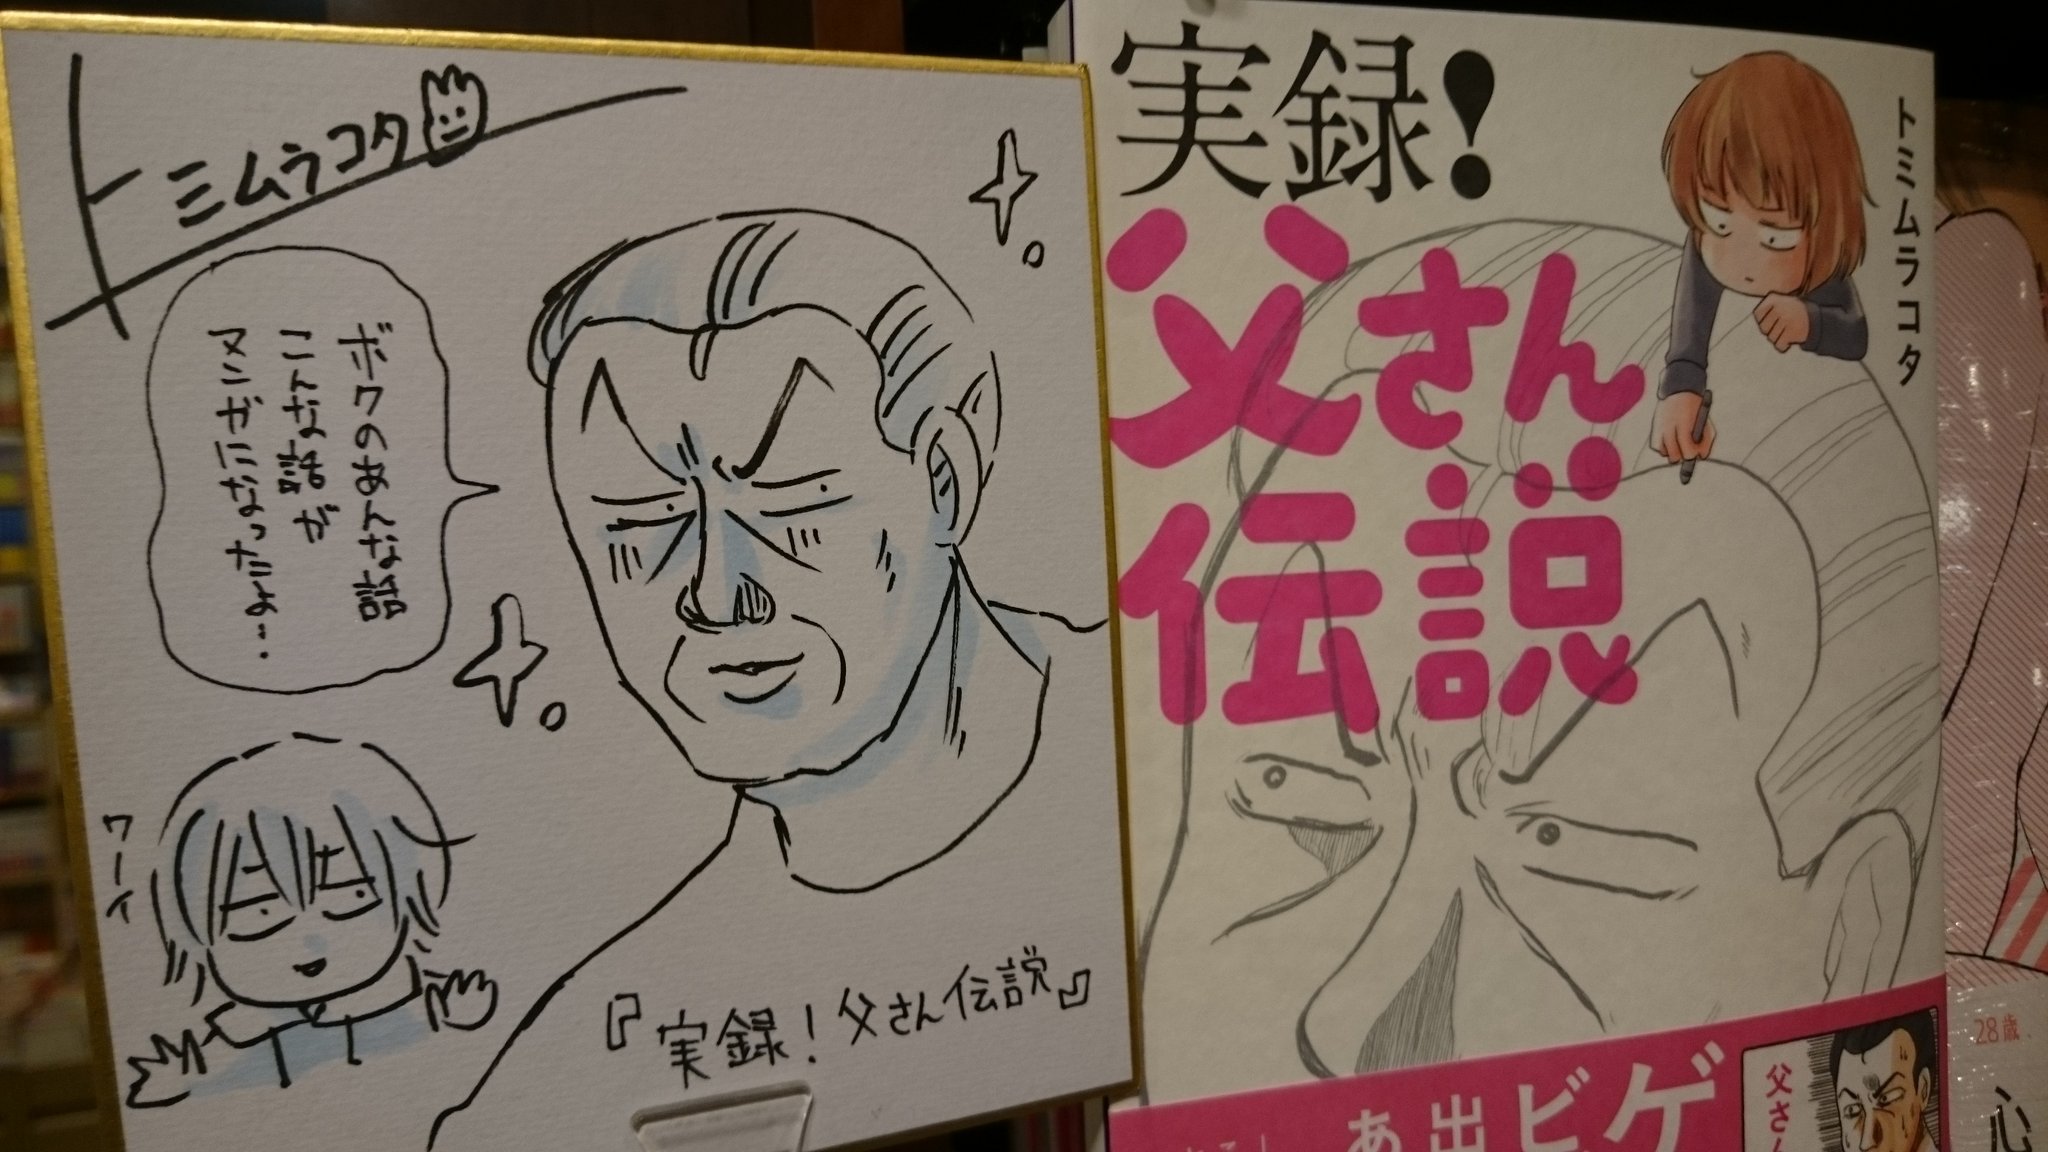 トミムラコタ
ボクのあんな話
こんな話が
マンガになっただよ…
ワーイ
『実録！父さん伝説』
実録！
父さん
伝説
トミムラコタ
あ出ビゲ
父さん
28歳
心